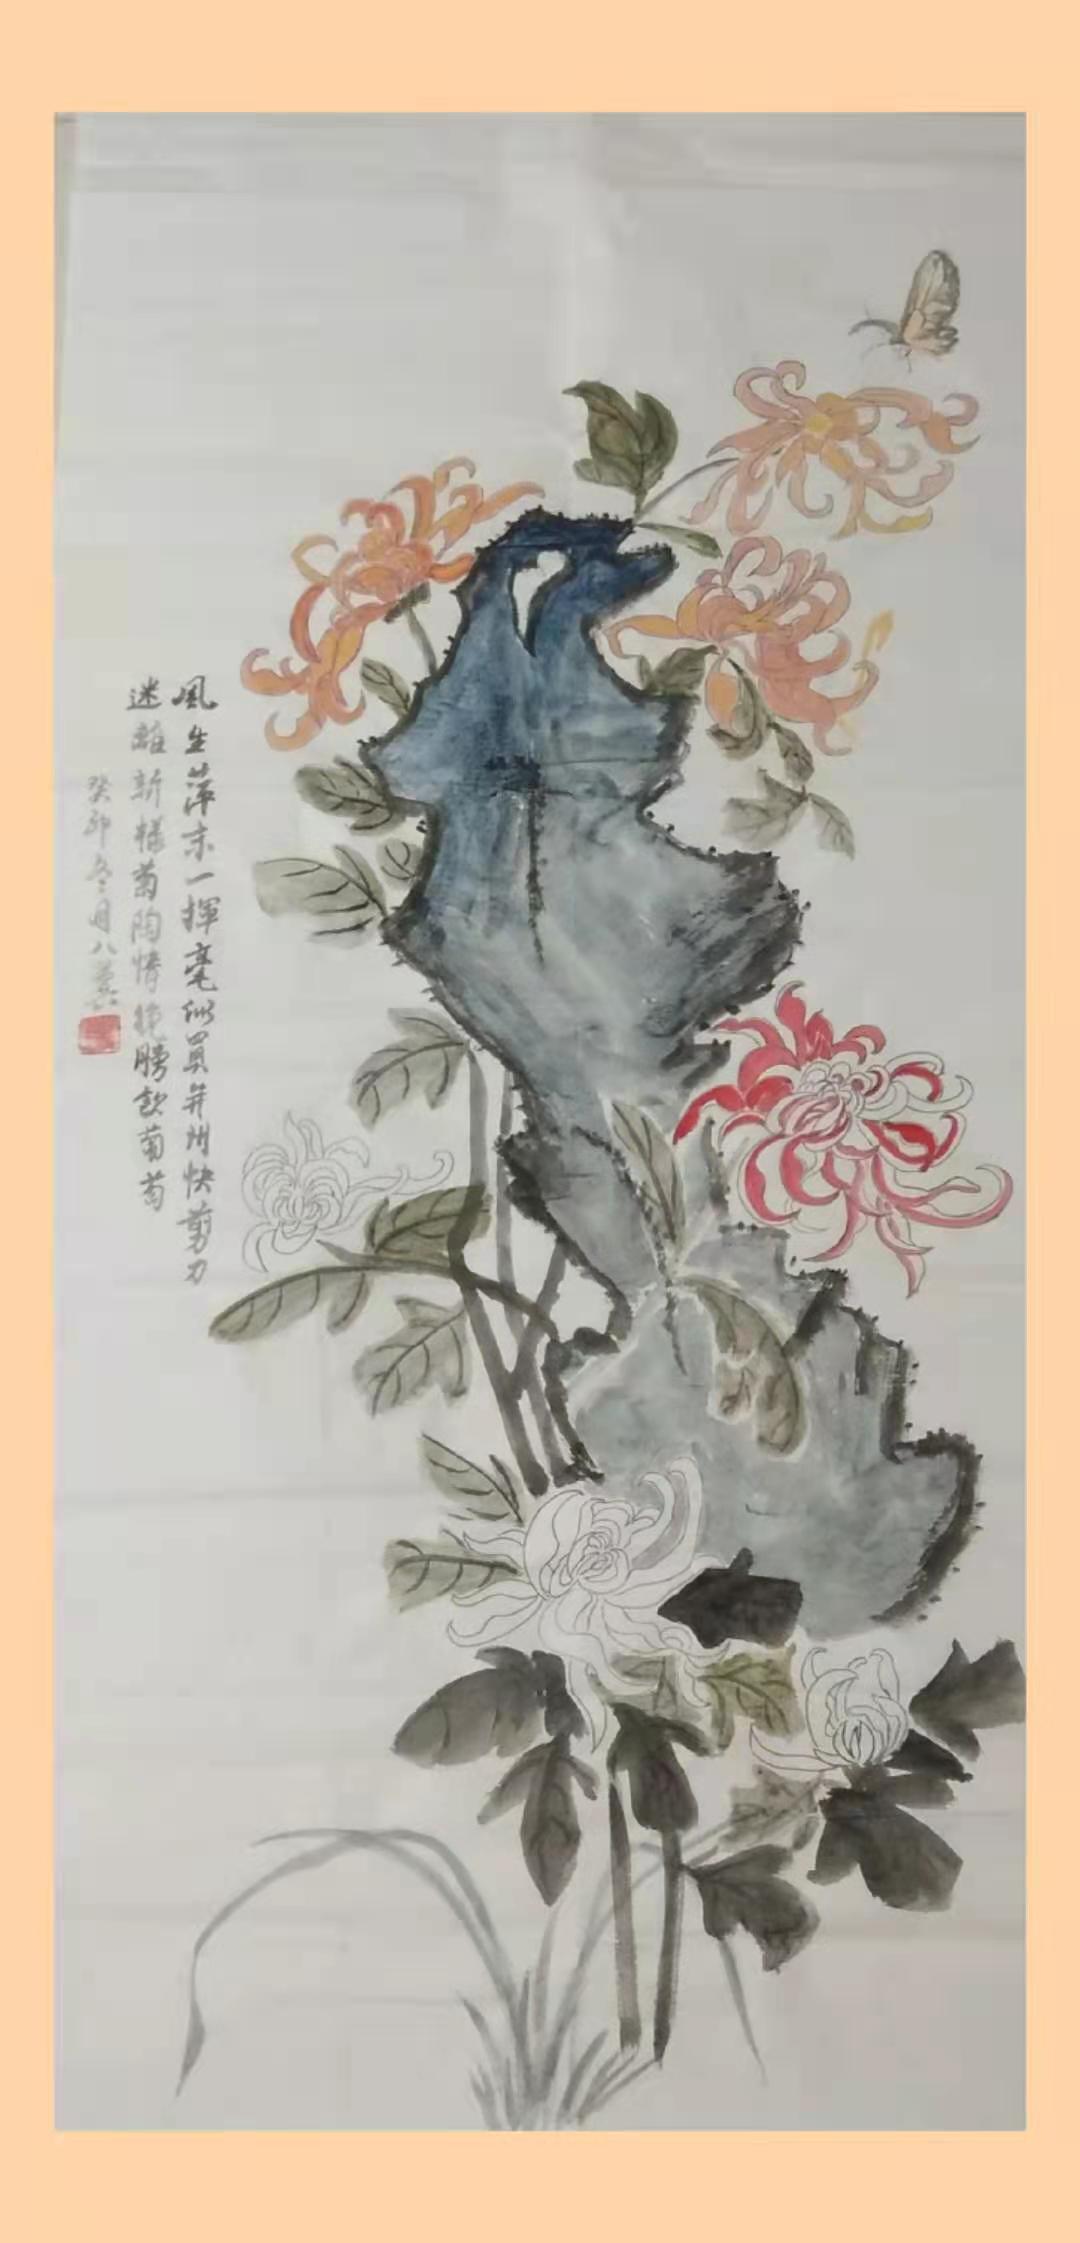 風生萍末一揮毫似買并州快剪刀
迷離新樣菊陶情挽勝飲葡萄
癸卯冬月八